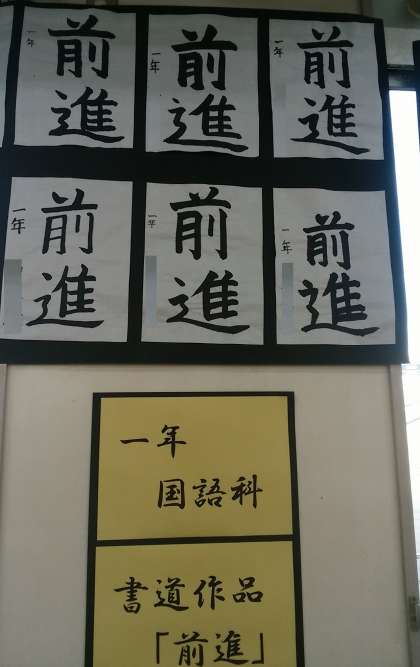 前進
一年
前進
一年
前進
一年
前進
一年
前進
一年
前進
一年
一年
国語科
書道作品
「前進」